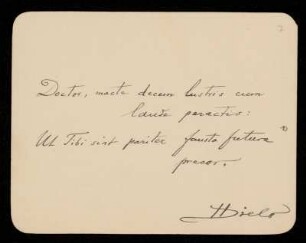 Doctor, macte decem lustris cum
laude peractis:
Ut Tibi sint pariter fausta futura
precor.